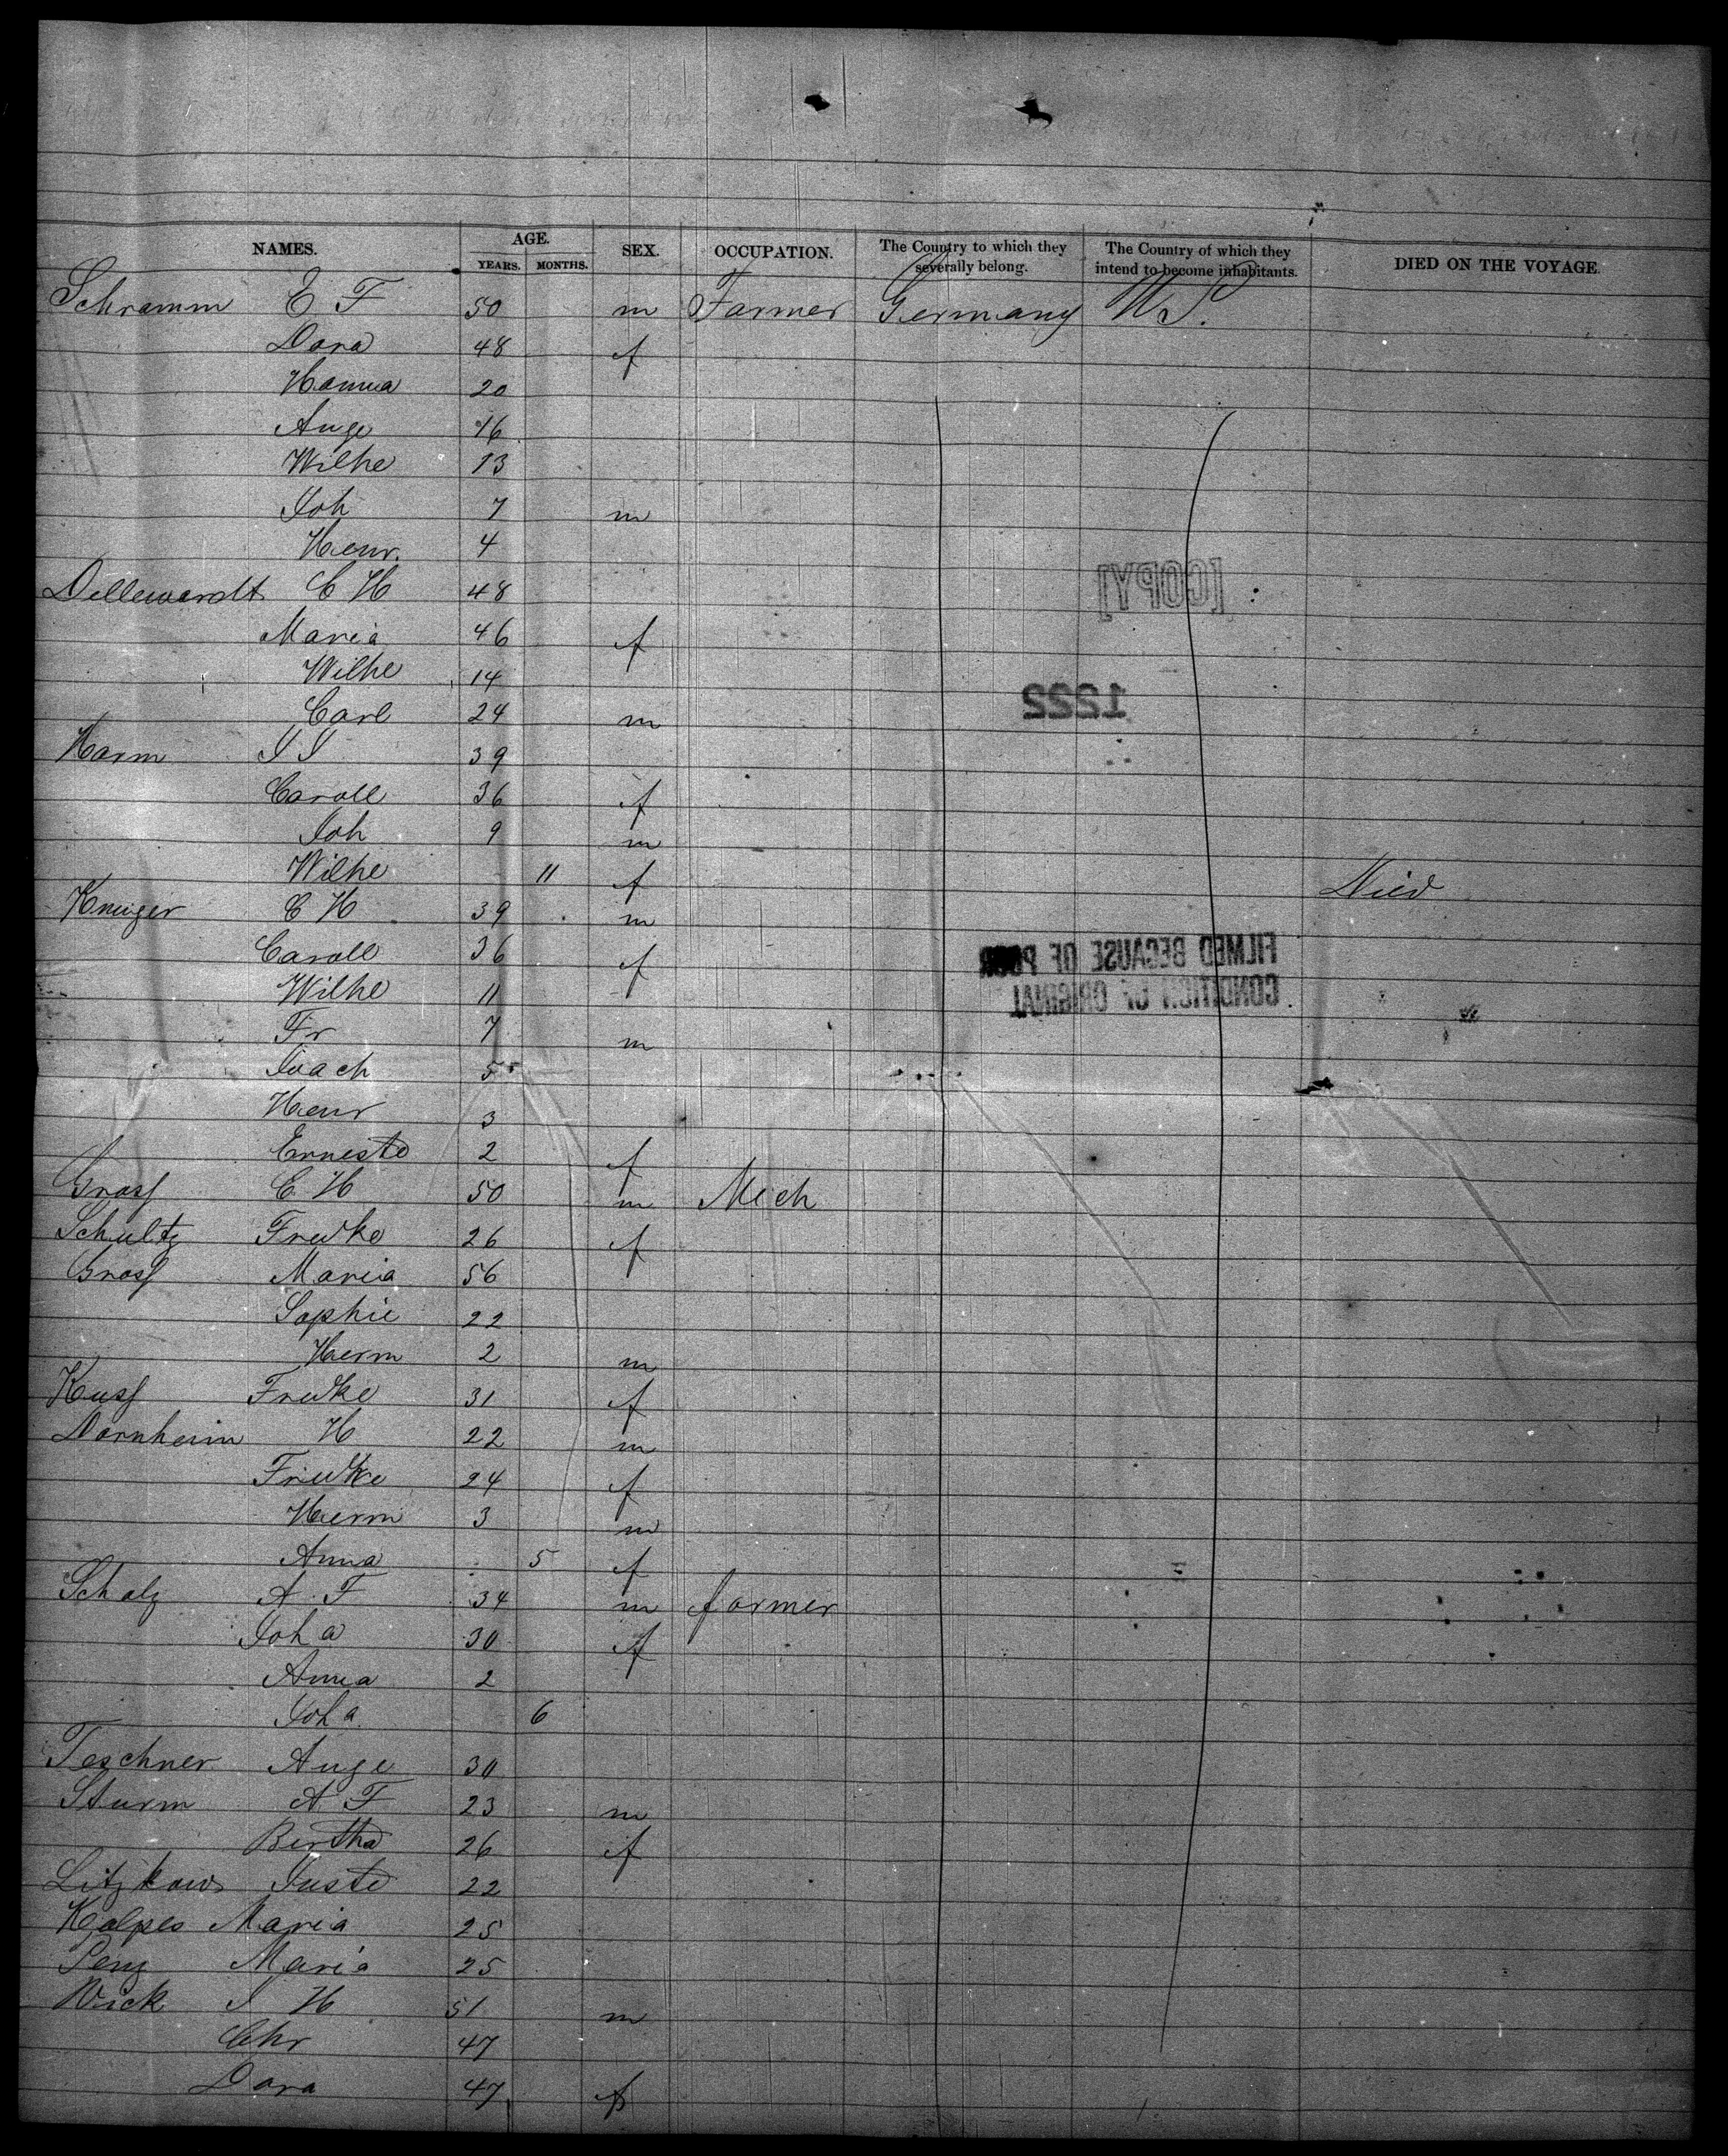 NAMES. AGE. SEX. OCCUPATION. The Country to which they severally belong. The Country of which they intend to become inhabitants. DIED ON THE VOYAGE.
YEARS. MONTHS.
Schramm E F 50 m Farmer Germany U S.
Dora 48 f
Hanna 20
Auge 16
Wilhe 13
Joh 7 m
Henr. 4
Dellewardt C H 48
[COPY]
Maria 46 f
Wilhe 14
Carl 24 m
1222
Harm J J 39
Caroll 36 f
Joh 9 m
Wilhe 11 f Died
Krueger C H 39 m
Caroll 36 f
FILMED BECAUSE OF POOR
CONDITION OF ORIGINAL
Wilhe 11
Fr 7 m
Joach 5
Henr 3
Erneste 2 f
Grass C H 50 m Mech
Schultz Fredke 26 f
Grass Maria 56
Sophie 22
Herm 2 m
Kuss Fredke 31 f
Dornheim H 22 m
Friedke 24 f
Herm 3 m
Anna 5 f
Scholz A. F 34 m farmer
Joha 30 f
Anna 2
Joha 6
Teschner Auge 30
Sturm A F 23 m
Bertha 26 f
Litzkow Juste 22
Kalpes Maria 25
Penz Maria 25
Wick J H 51 m
Chr 47
Dora 47 f